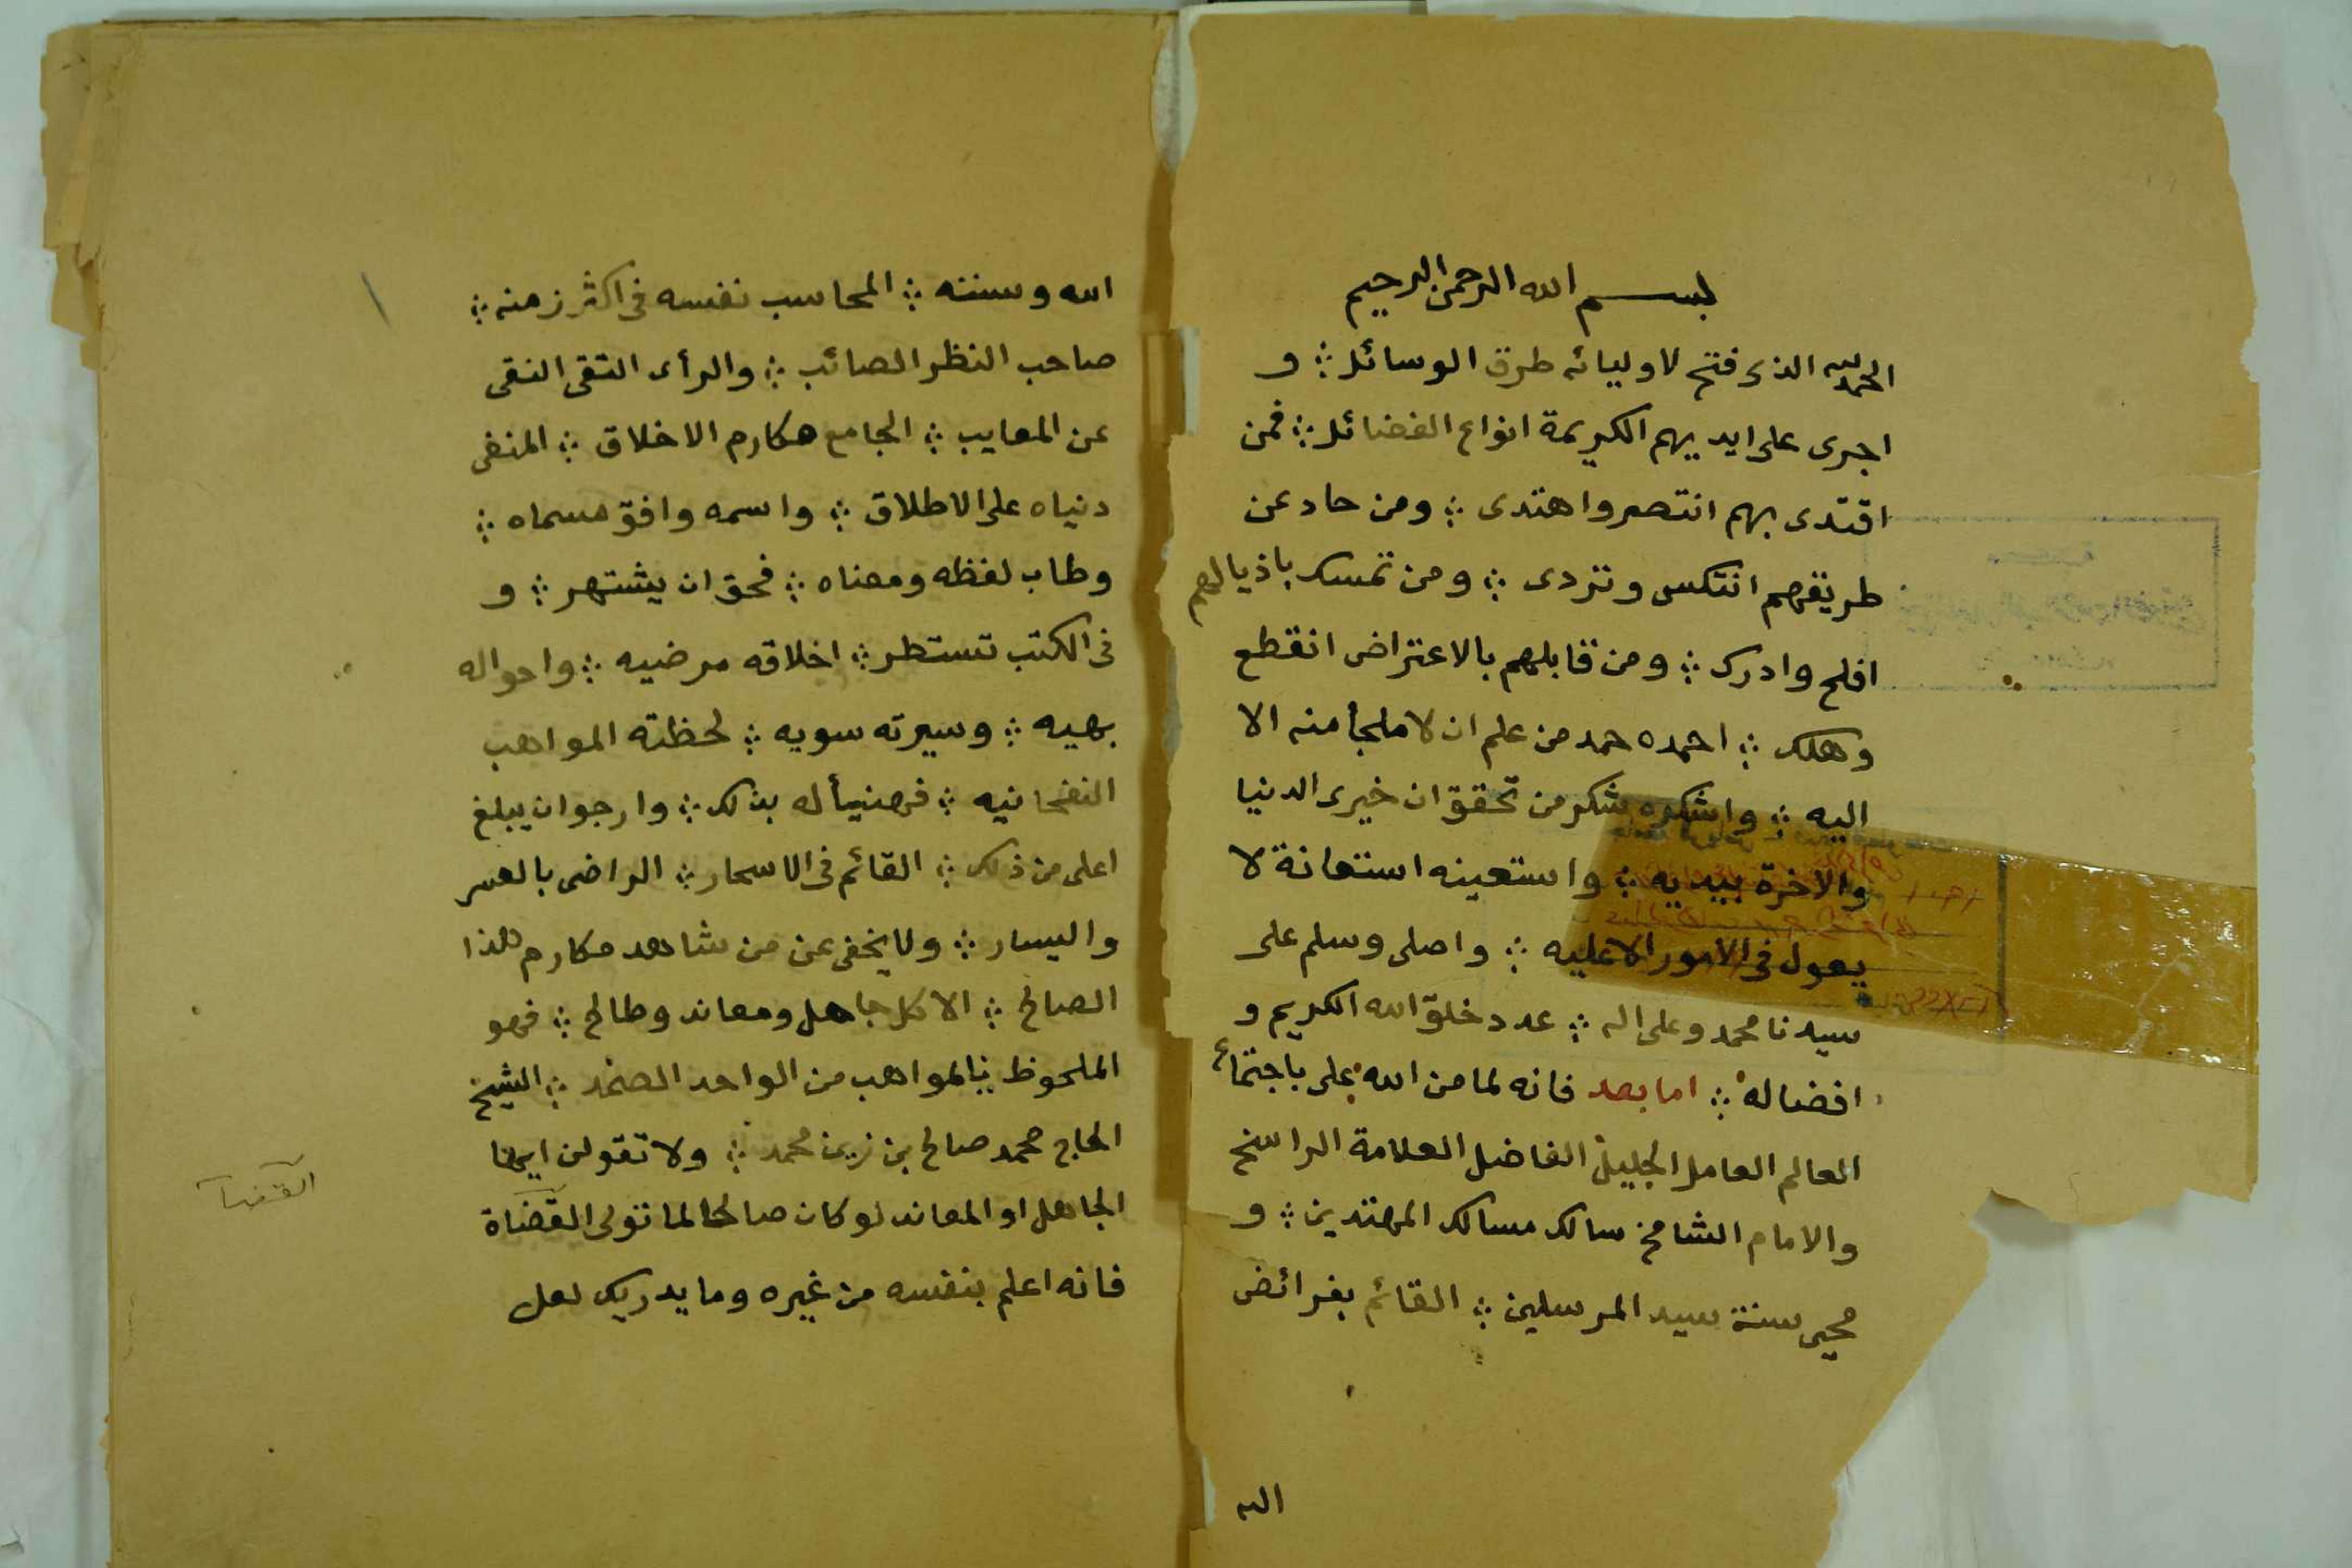 بسم الله الرحمن الرحيم
الحمد لله الذى فتح لاوليائه طرق الوسائل ؞ و
اجرى على ايديهم الكريمة انواع الفضائل ؞ فمن
اقتدى بهم انتصر واهتدى ؞ ومن حاد عن
طريقهم انتكس وتردى ؞ ومن تمسك باذيالهم
افلح وادرك ؞ ومن قابلهم بالاعتراض انقطع
وهلك ؞ احمده حمد من علم ان لا ملجأ منه الا
اليه ؞ واشكره شكر من تحقق ان خيرى الدنيا
والاخرة بيديه ؞ واستعينه استعانة لا
يعول فى الامور الا عليه ؞ واصلى وسلم على
سيدنا محمد وعلى اله ؞ عدد خلق الله الكريم و
افضاله ؞ اما بعد فانه لما من الله على باجتماع
العالم العامل الجليل الفاضل العلامة الراسخ
والامام الشامخ سالك مسالك المهتدين ؞ و
محيى سنة سيد المرسلين ؞ القائم بفرائض
الله
الله وسننه ؞ المحاسب نفسه فى اكثر زمنه ؞
صاحب النظر الصائب ؞ والرأى التقى النقى
عن المعايب ؞ الجامع مكارم الاخلاق ؞ المنفى
دنياه على الاطلاق ؞ واسمه وافق مسماه ؞
وطاب لفظه ومعناه ؞ فحق ان يشتهر ؞ و
فى الكتب تستطر ؞ اخلاقه مرضيه ؞ واحواله
بهيه ؞ وسيرته سويه ؞ لحظته المواهب
النفحانيه ؞ فهنيأ له بذلك ؞ وارجو ان يبلغ
اعلى من ذلك ؞ القائم فى الاسحار ؞ الراضى بالعسر
واليسار ؞ ولا يخفى عن من شاهد مكارم هذا
الصالح ؞ الا كل جاهل ومعاند وطالح ؞ فهو
الملحوظ بالمواهب من الواحد الصمد ؞ الشيخ
الحاج محمد صالح بن زين محمد ؞ ولا تقولن ايها
الجاهل او المعاند لو كان صالحا لما تولى القضاة
فانه اعلم بنفسه من غيره وما يدريك لعل
القضا